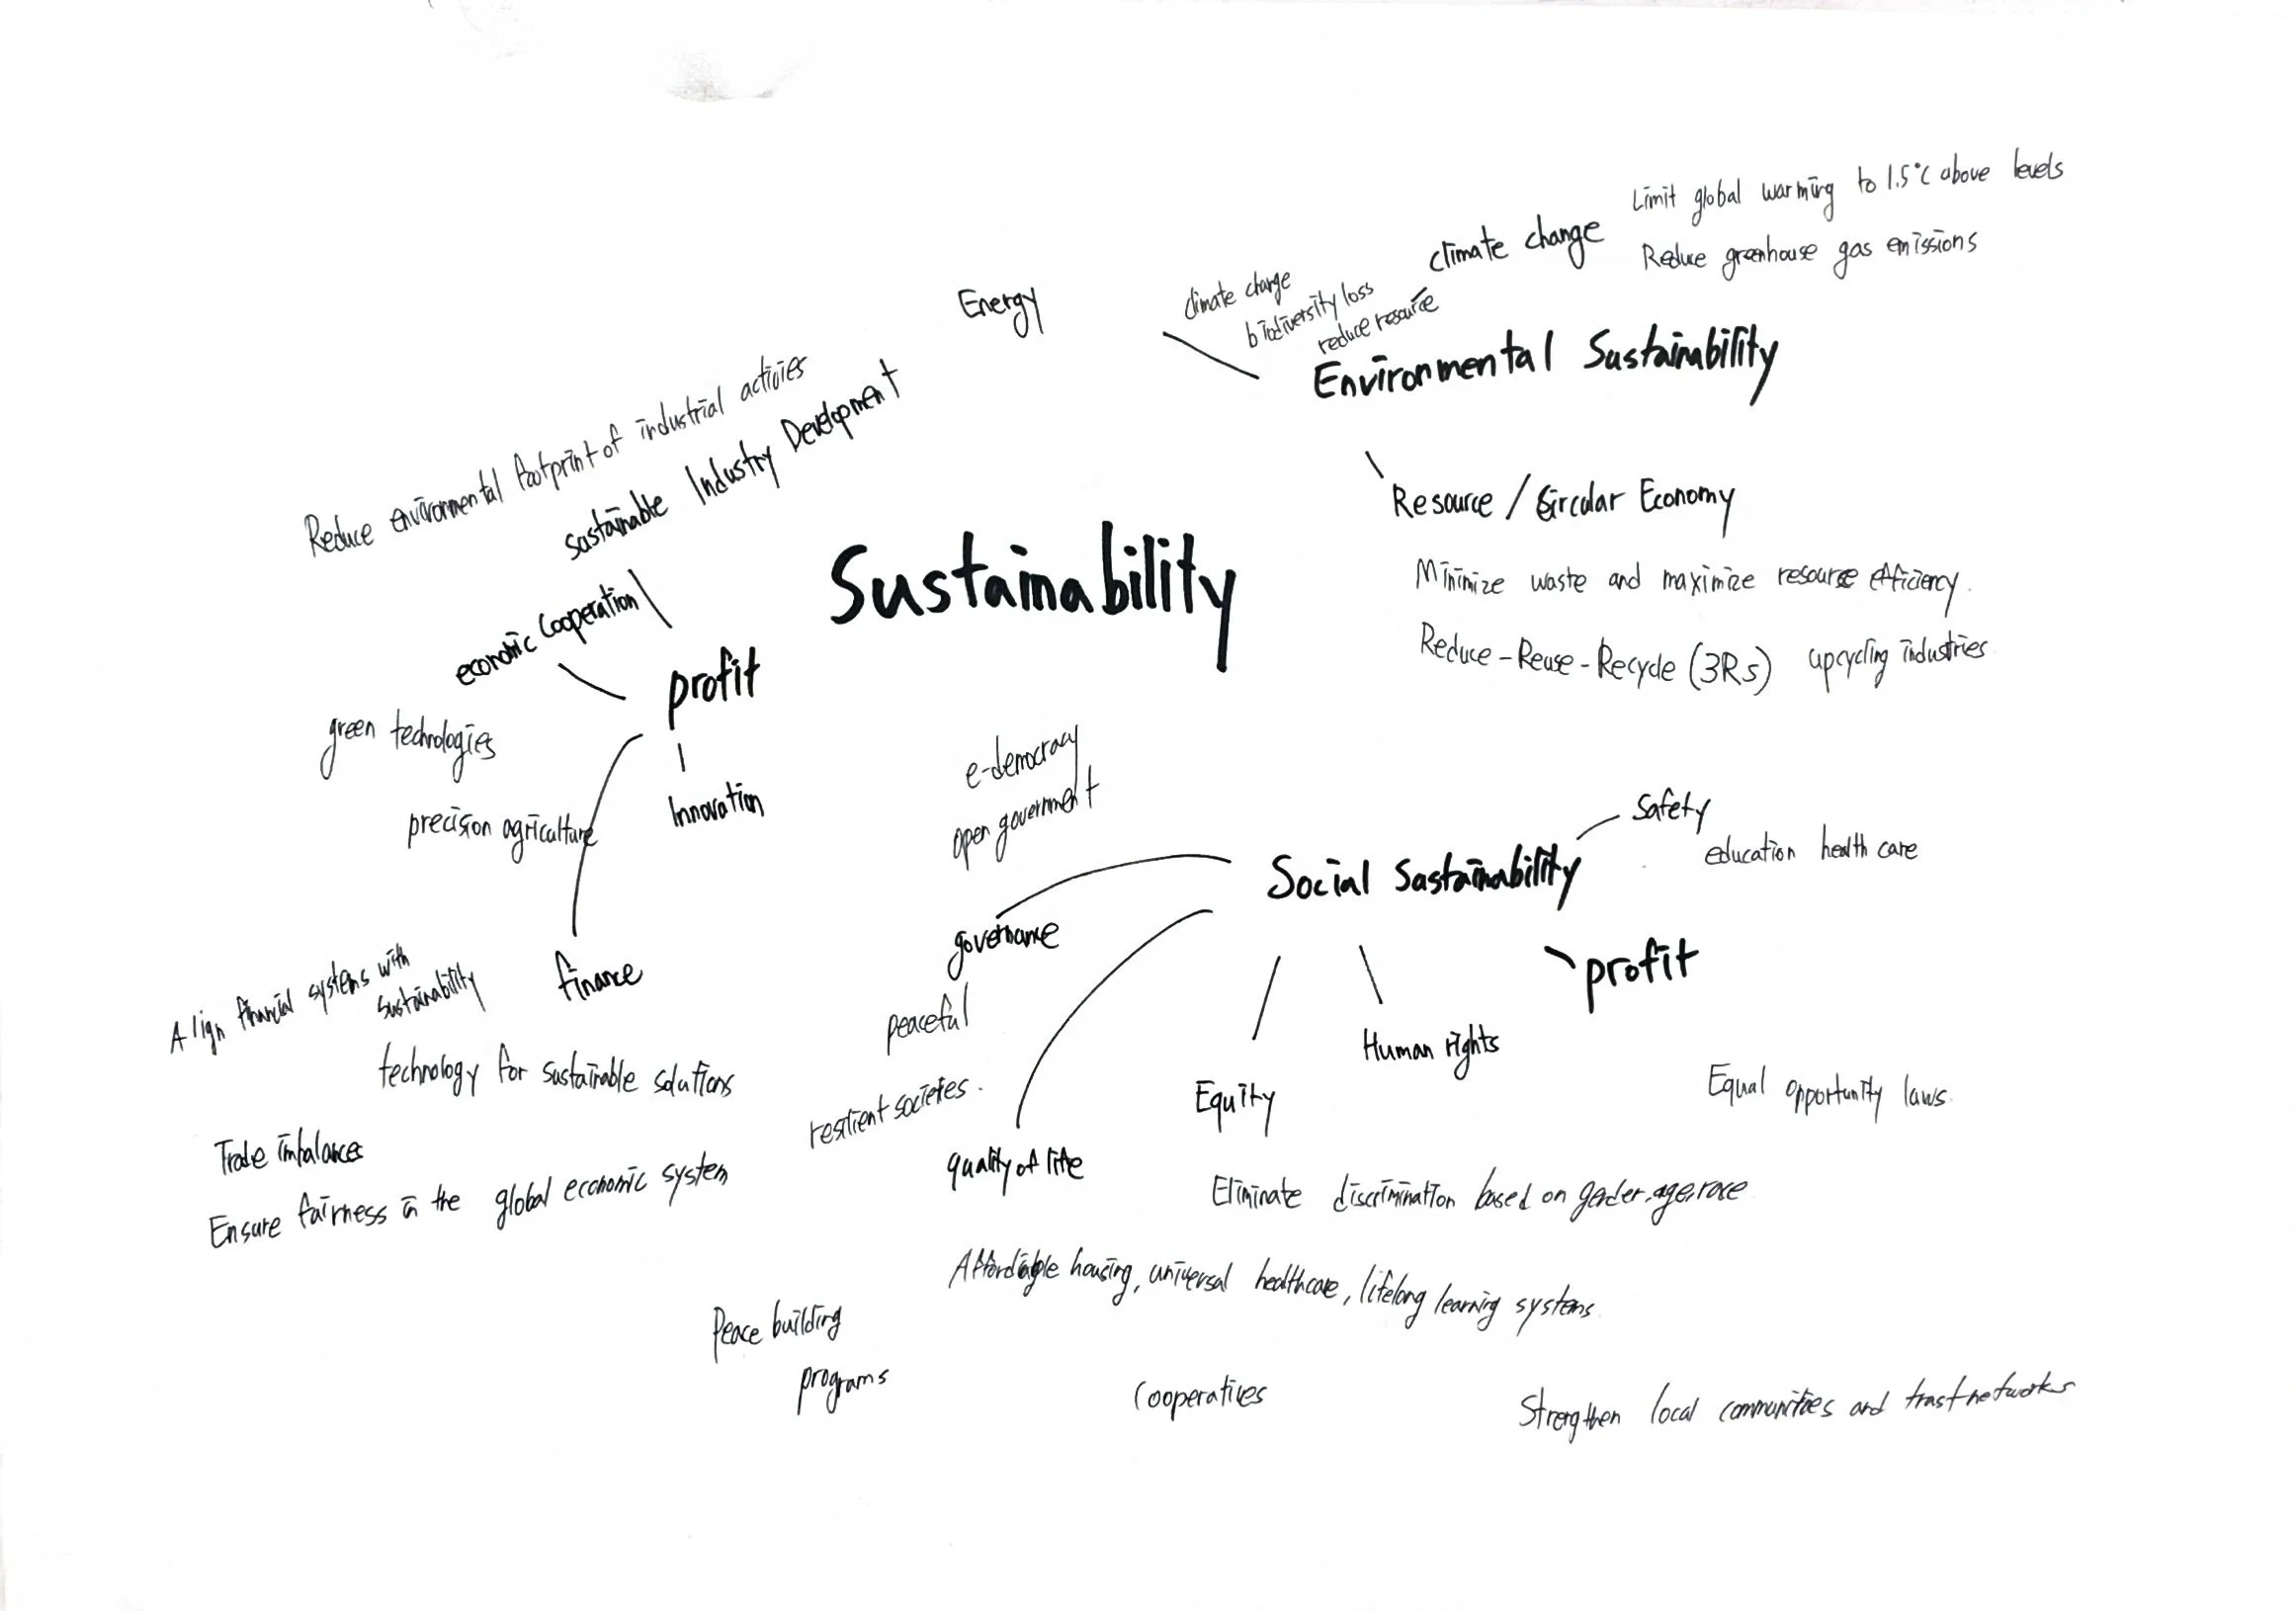 Limit global warming to 1.5°C above levels
climate change
Reduce greenhouse gas emissions
Energy
climate change
biodiversity loss
reduce resource
Environmental Sustainability
Reduce environmental footprint of industrial activies
sastainable Industry Development
Resource / Circular Economy
Sustainability
economic Cooperation
Minimize waste and maximize resource efficiency.
profit
Reduce-Reuse-Recycle (3Rs) upcycling industries
green technologies
e-democracy
open government
Innovation
precision agriculture
Safety
education health care
Social Sastainability
governance
profit
Align financial systems with
sustainability
finance
peaceful
Human rights
technology for sustainable solutions
Equity
Equal opportunity laws.
resilient societes.
Trade imbalances
quality of life
Ensure fairness in the global economic system
Eliminate discrimination based on gender, age, race
Affordable housing, universal healthcare, lifelong learning systems
Peace building
programs
Cooperatives
Strengthen local communities and trast networks